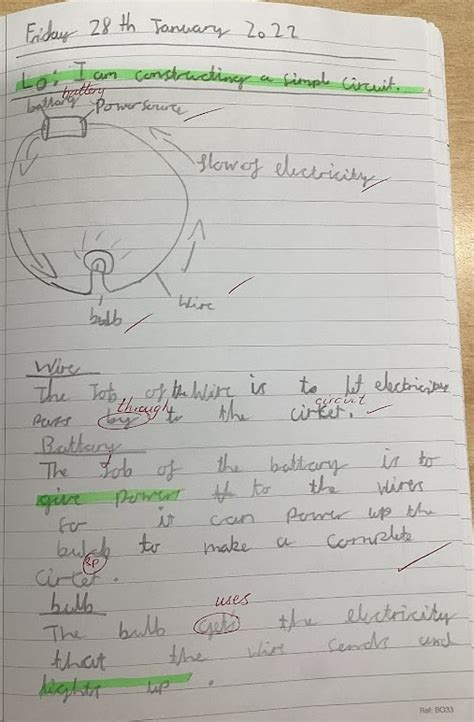 Friday 28th January 2022
LO: I am constructing a simple circuit.
battery
battary Power source
flow of electricity
Wire
bulb
Wire
The Job of the Wire is to let electricity
through circuit
pass by to the cirket.
Battary
The Job of the battary is to
give power to the wires
for it can power up the
bulb to make a complete
sp
cirket.
bulb
uses
The bulb gets the electricity
that the wire sends and
lights up.
Ref: BO33